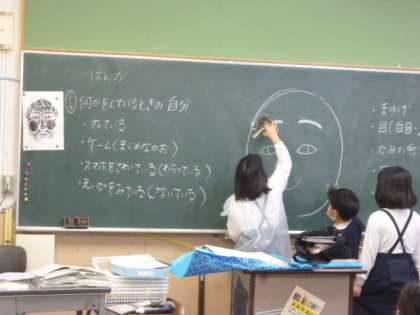 はんが
何かをしているときの自分
・ねている
・ゲーム(まじめなかお)
・スマホをさわっている(わらっている)
・えいがをみている(ないている)
・まゆげ
・目(白目
・かみの毛